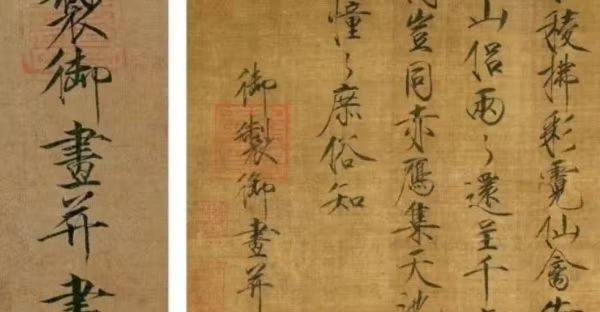 製御畫并書
稜拂彩霓仙禽
山侶兩〻還呈千
豈同赤鴈集天
憧〻庶俗知
御製御畫并